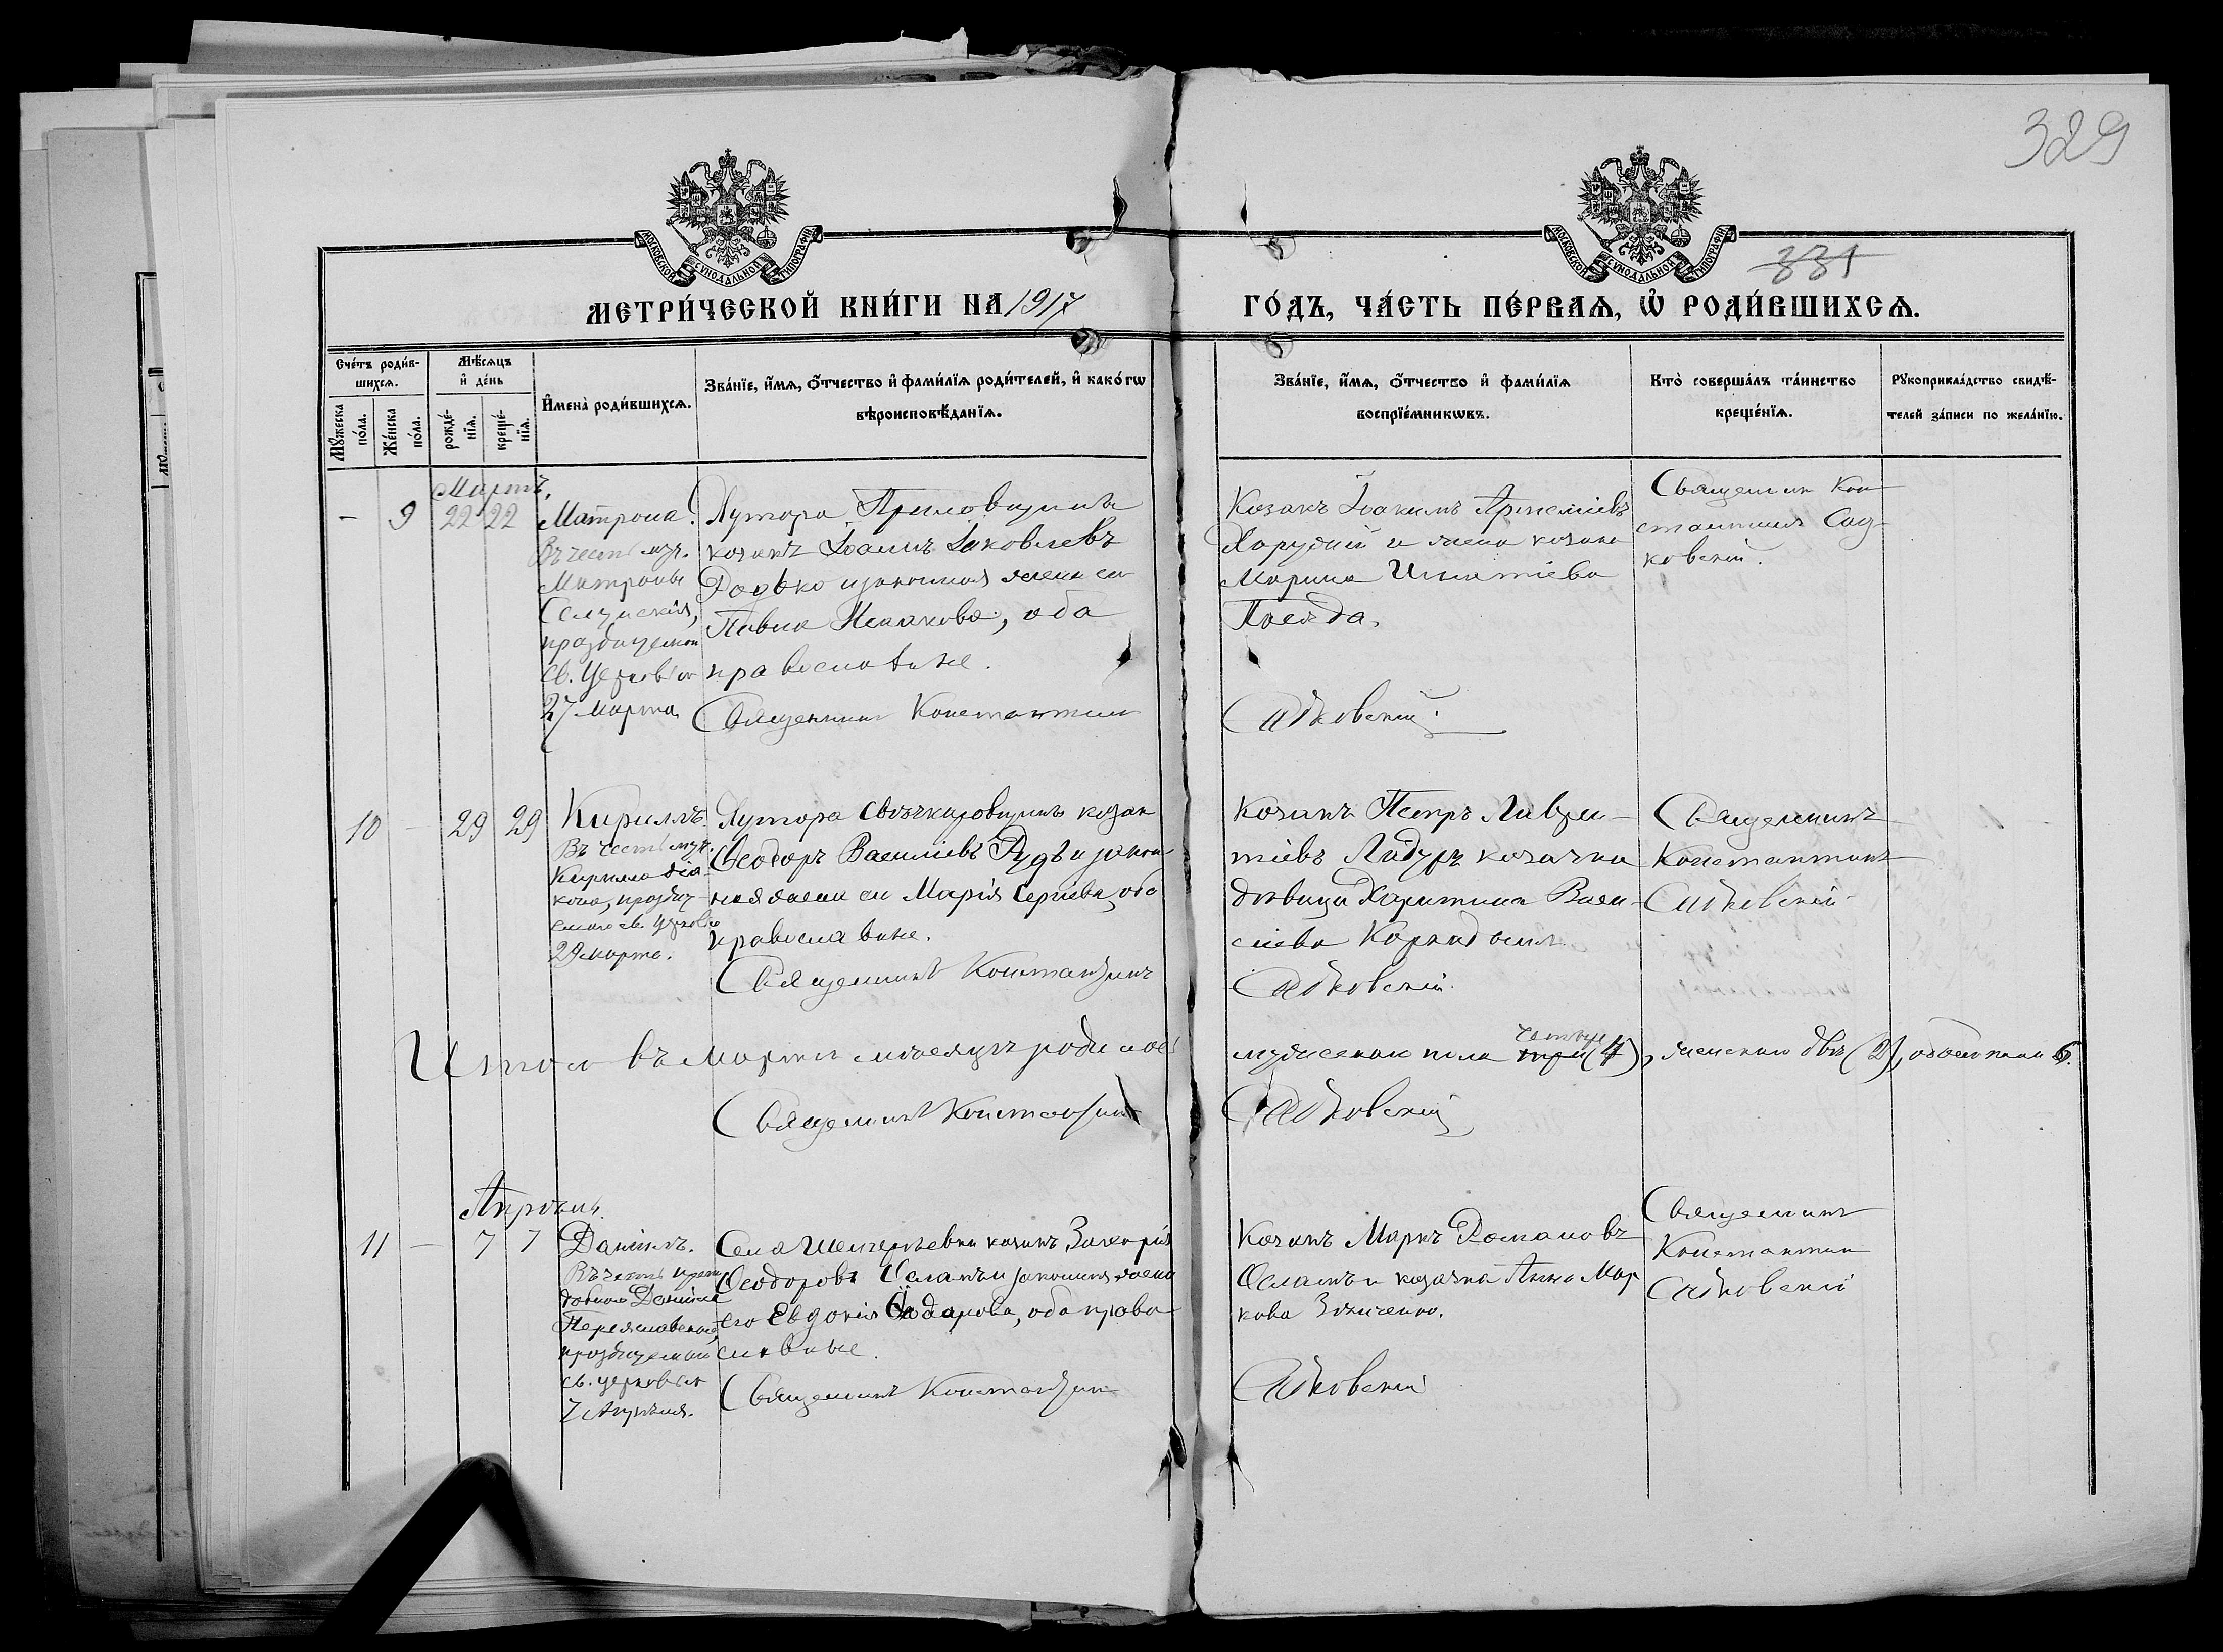 329
331
МОСКОВСКОЙ СѴНОДАЛЬНОЙ ТИПОГРАФІИ
МОСКОВСКОЙ СѴНОДАЛЬНОЙ ТИПОГРАФІИ
МЕТРИ́ЧЕСКОЙ КНИ́ГИ НА 1917
ГО́ДЪ, ЧА́СТЬ ПЕ́РВАѦ, Ѡ҆ РОДИ́ВШИХСѦ.
Сче́тъ роди́в-
шихсѧ.
Мꙋ́жеска по́ла.
Же́нска по́ла.
Мѣ́сѧцъ
и҆ де́нь
рожде́-
нїѧ.
креще́-
нїѧ.
И҆мена̀ роди́вшихсѧ.
Зва́нїе, и҆́мѧ, ѻ҆́тчество и҆ фами́лїѧ роди́телей, и҆ како́гѡ
вѣроисповѣ́данїѧ.
Зва́нїе, и҆́мѧ, ѻ҆́тчество и҆ фами́лїѧ
воспрїе́мникѡвъ.
Кто̀ соверша́лъ та́инство
креще́нїѧ.
Рꙋкоприкла́дство свидѣ́-
телей за́писи по жела́нїю.
Мартъ.
— 9 22 22
Матрона.
Въ честь муч.
Матроны
Селунскія,
празднуемой
св. Церковью
27 Марта
Хутора
козакъ Іоаннъ Іаковлевъ
Родько и законная жена его
Павла Исаакова, оба
православные.
Священникъ Константинъ
Козакъ Іоакимъ Артеміевъ
и жена козака
Марина Игнатіева
Садковскій.
Священник Кон-
стантинъ Сад-
ковскій.
10 — 29 29
Кириллъ.
Въ честь муч.
Кирилла діа-
кона, праздну-
емаго св. Церковью
29 марта.
Хутора козакъ
Ѳеодоръ Василіевъ Рудь и закон-
ная жена его Марія Сергіева, оба
православные.
Священникъ Константинъ
Козакъ Петръ Лаврен-
тіевъ козачка
дѣвица Харитина Васи-
ліева
Садковскій.
Священникъ
Константинъ
Садковскій
Итого въ Мартѣ мѣсяцѣ родилось
мужескаго пола три четыре (4), женскаго двѣ (2), обоего пола 6.
Священникъ Константинъ
Садковскій
Апрѣль.
11 — 7 7
Даніилъ.
Въ честь препо-
добнаго Даніила
Переяславскаго,
празднуемаго
св. церковью
7 Апрѣля.
Села козакъ Захарій
Ѳеодоровъ и законная жена
его Евдокія, оба право-
славные.
Священникъ Константинъ
Козакъ Маркъ Романовъ
и козачка Анна Мар-
кова
Садковскій
Священникъ
Константинъ
Садковскій